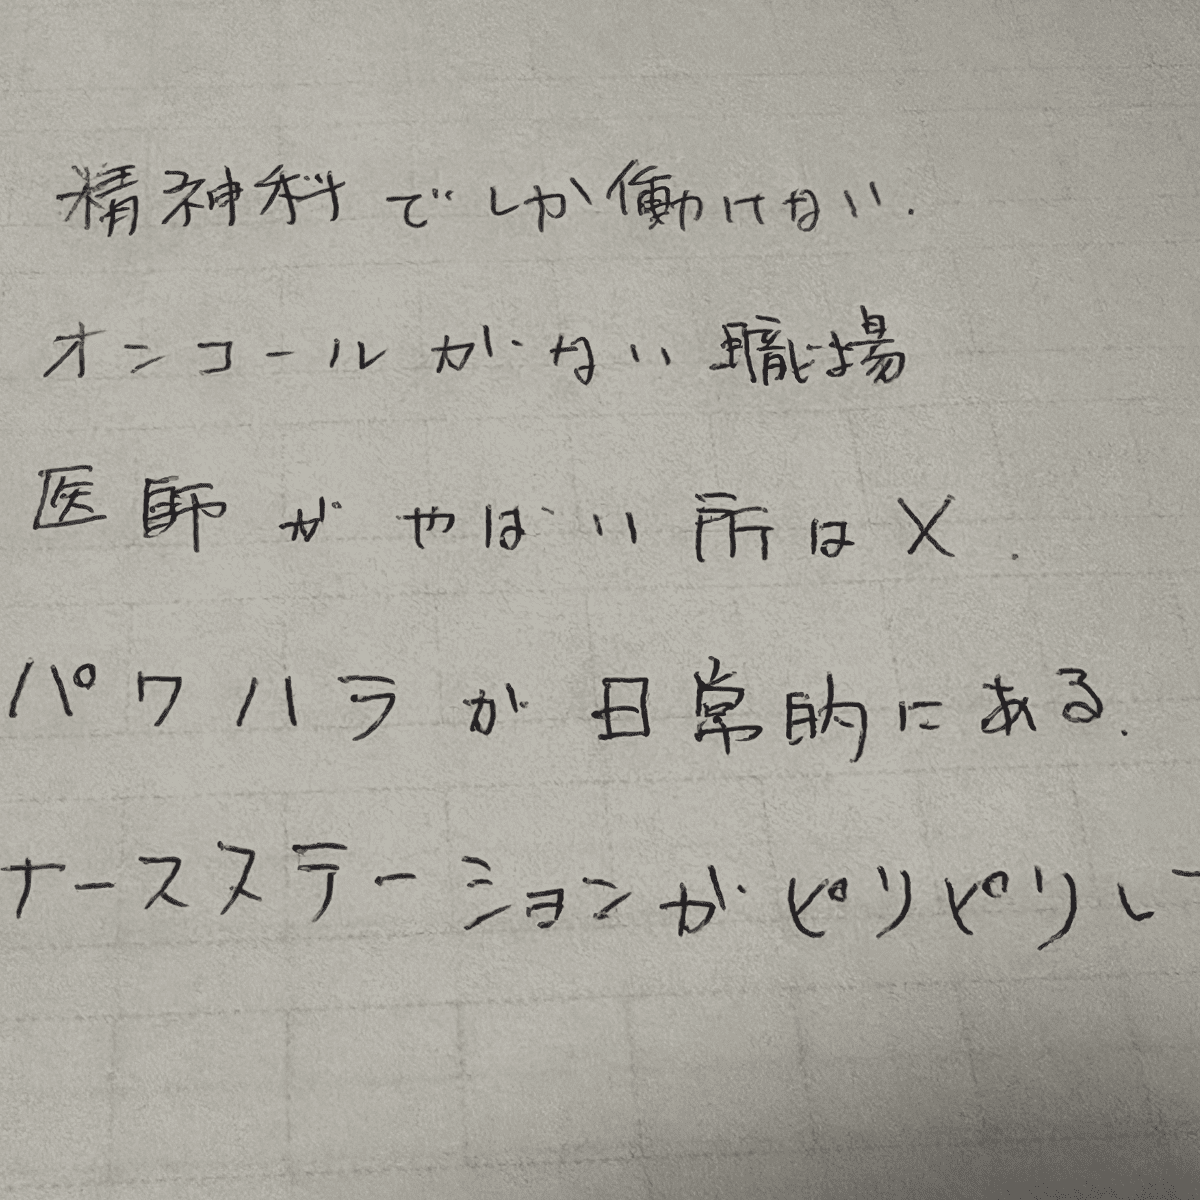 精神科でしか働けない.
オンコールがない職場
医師がやばい所は X .
パワハラが日常的にある.
ナースステーションがピリピリし